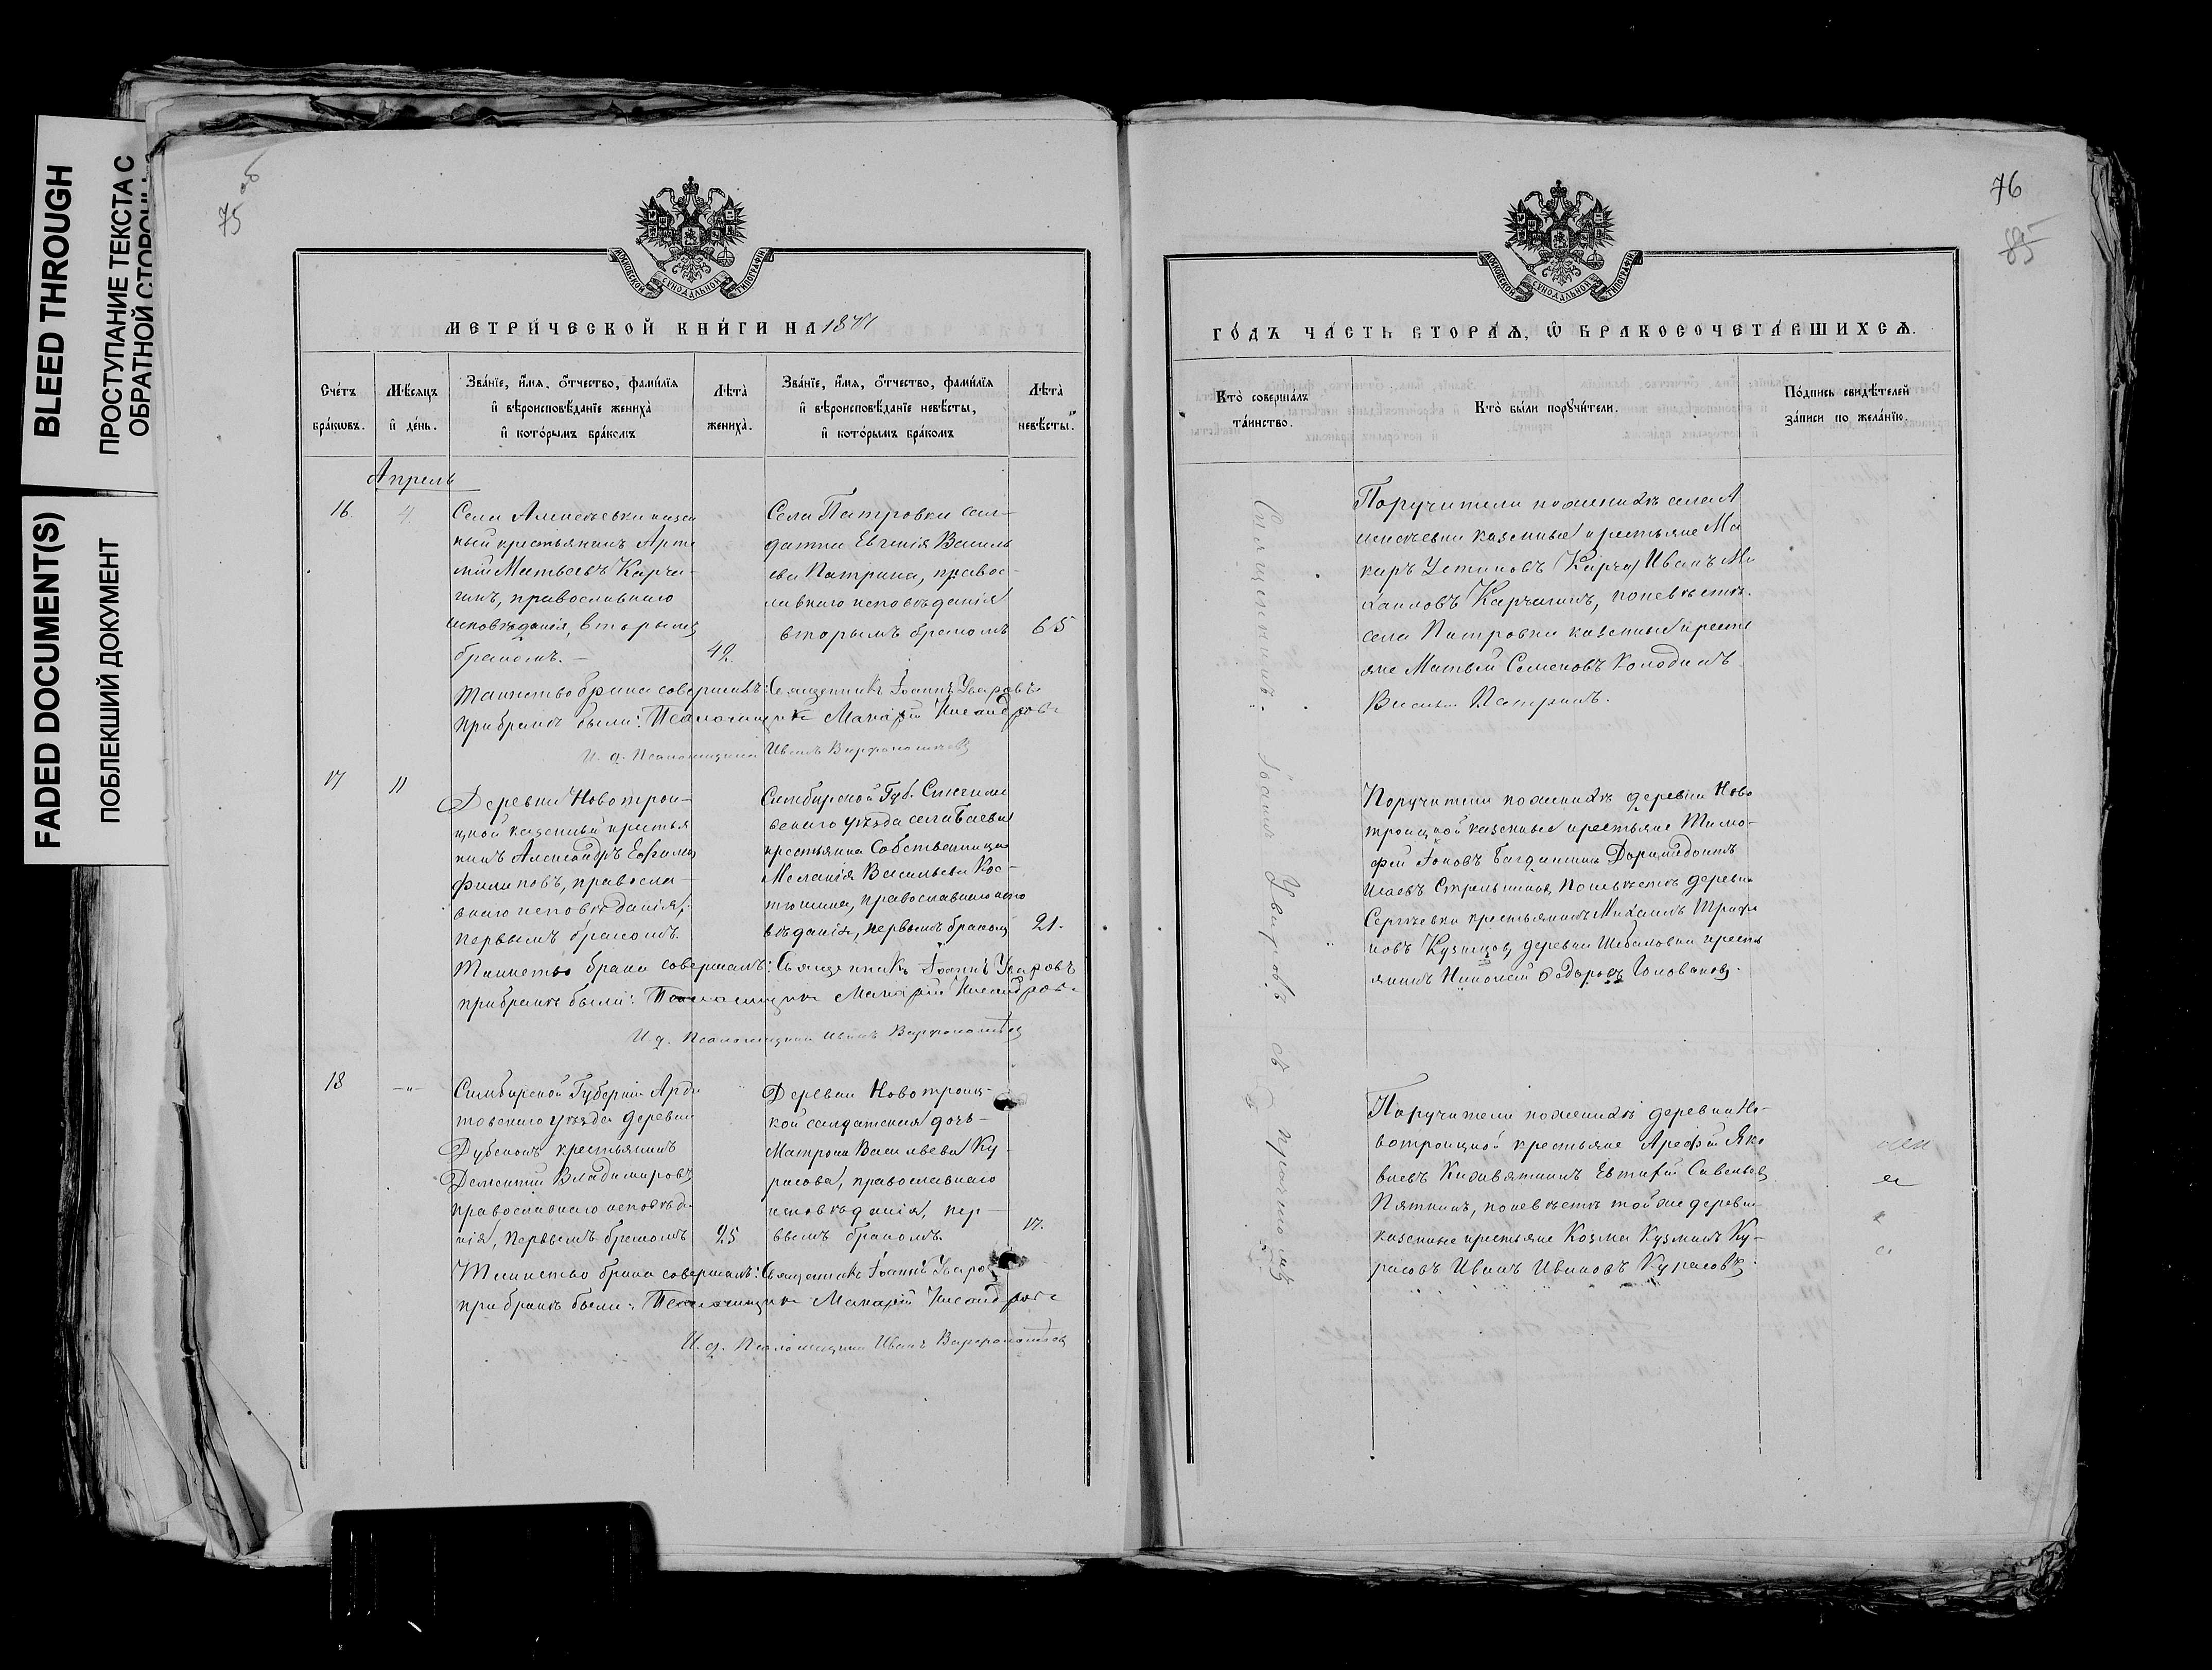 BLEED THROUGH
ПРОСТУПАНИЕ ТЕКСТА С
ОБРАТНОЙ СТОРОНЫ
FADED DOCUMENT(S)
ПОБЛЕКШИЙ ДОКУМЕНТ
75 об
МОСКОВСКОЙ СѴНОДАЛЬНОЙ ТИПОГРАФІИ
МЕТРИ́ЧЕСКОЙ КНИ́ГИ НА 1871
Сче́тъ бра́кѡвъ.
Мѣ́сяцъ и҆ де́нь.
Зва́нїе, и҆́мѧ, ѻ҆́тчество, фами́лїѧ
и҆ вѣроисповѣ́данїе жениха̀
и҆ кото́рымъ бра́комъ
Лѣ́та̀ жениха̀.
Зва́нїе, и҆́мѧ, ѻ҆́тчество, фами́лїѧ
и҆ вѣроисповѣ́данїе невѣ́сты,
и҆ кото́рымъ бра́комъ
Лѣ́та̀ невѣ́сты.
Апрель
16.
4
Села Алексѣевки казен
ный крестьянинъ Арте
мій Матвеевъ Карча-
гинъ, православнаго
исповѣданія, вторымъ
бракомъ.
42.
Села Патровки сол-
датка Евгенія Василь
ева Патрина, правос-
лавнаго исповѣданія
вторымъ бракомъ
65
Таинство брака совершалъ: Священникъ Іоаннъ Уваровъ
При бракѣ были: Псаломщикъ Макарій Никандровъ
И. д. Псаломщика Иванъ Варфоломѣевъ
17
11
Деревни Новотрои-
цкой казенный крестья
нинъ Александръ Ефимовъ
Филиповъ, правосла-
внаго исповѣданія,
первымъ бракомъ.
Симбирской Губ. Сингиле
евскаго уѣзда села Баевки
крестьянка Собственница
Меланія Васильева Кос-
тюнина, православнаго испо
вѣданія, первымъ бракомъ
21.
Таинство брака совершалъ: Священникъ Іоаннъ Уваровъ
при бракѣ были: Псаломщикъ Макарій Никандровъ
И. д. Псаломщика Иванъ Варфоломѣевъ
18
-"-
Симбирской Губерніи Арда
товскаго уѣзда деревни
Дубенокъ крестьянинъ
Дементій Владимировъ
православнаго исповѣда
нія, первымъ бракомъ
25
Деревни Новотроиц-
кой солдатская дочь-
Матрона Васильева Ку-
расова, православнаго
исповѣданія, пер-
вымъ бракомъ.
17.
Таинство брака совершалъ: Священникъ Іоаннъ Уваровъ
при бракѣ были: Псаломщикъ Макарій Никандровъ
И. д. Псаломщика Иванъ Варфоломѣевъ
76
85
МОСКОВСКОЙ СѴНОДАЛЬНОЙ ТИПОГРАФІИ
ГО́ДЪ ЧА́СТЬ ВТОРА́Ѧ, Ѡ҆ БРАКОСОЧЕТА́ВШИХСѦ.
Кто̀ соверша́лъ та́инство.
Кто̀ бы́ли порꙋчи́тели.
По́дпись свидѣ́телей за́писи по жела́нїю.
Священникъ Іоаннъ Уваровъ съ причтомъ
Поручители по женихѣ села А
лексѣевки казенные крестьяне Ма
каръ Устиновъ Карча, Иванъ Ми
хаиловъ Карчагинъ, по невѣстѣ.
села Патровки казенные кресть
яне Матвей Семеновъ Колодинъ
Василій Патринъ.
Поручители по женихѣ деревни Ново
троицкой казенные крестьяне Тимо-
фей Іоновъ Богданкинъ Доримидонтъ
Исаевъ Стрельниковъ, По невѣстѣ деревни
Сергѣевки крестьянинъ Михаилъ Трифо
новъ Кузнецовъ, деревни Шабаловки кресть
янинъ Николай Ѳедоровъ Головановъ.
Поручители по женихѣ деревни Но-
вотроицкой крестьяне Арефій Яко
влевъ Кизивяткинъ Евтифій Савельевъ
Пяткинъ, по невѣстѣ той же деревни
казенные крестьяне Козма Кузминъ Ку-
расовъ Иванъ Ивановъ Курасовъ.